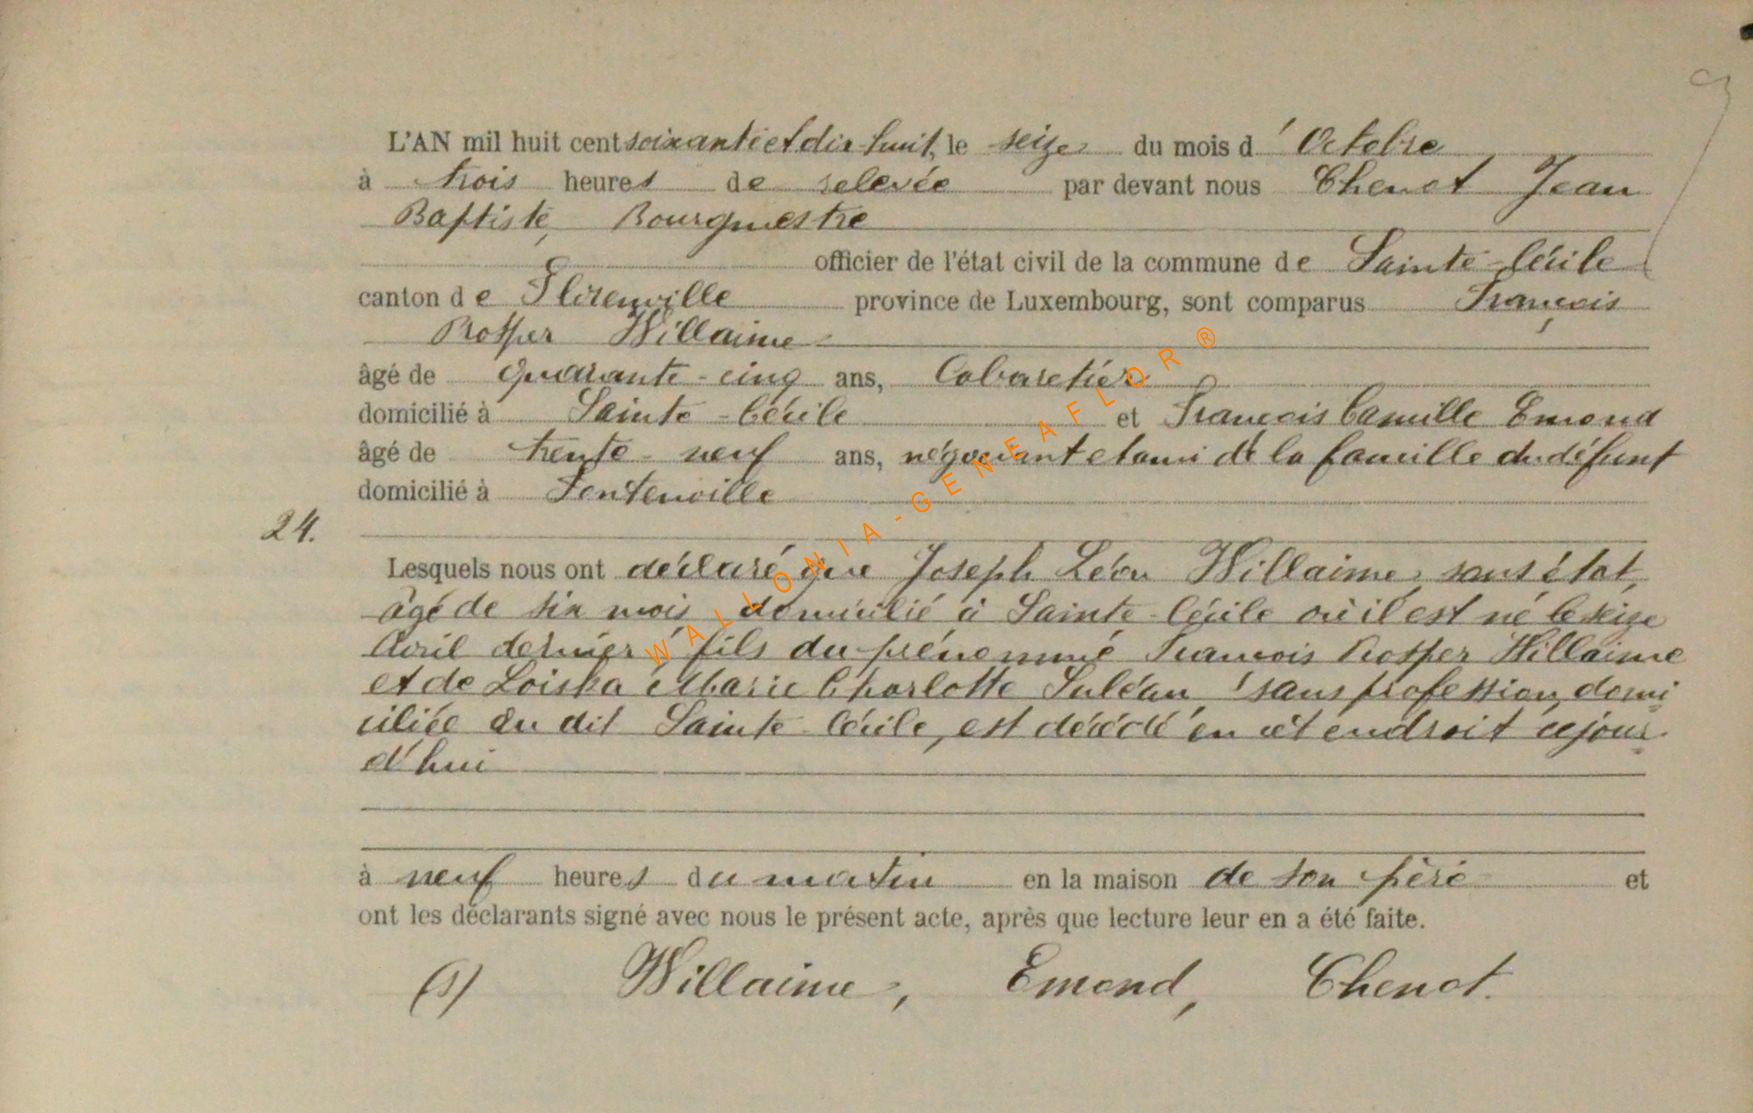 L'AN mil huit cent soixante et dix huit, le seize du mois d'Octobre
à trois heures de relevée par devant nous Chenot Jean
Baptiste, Bourgmestre
officier de l'état civil de la commune de Sainte-Cécile
canton de Florenville province de Luxembourg, sont comparus François
Prosper Willaime
âgé de quarante-cinq ans, Cabaretier
domicilié à Sainte-Cécile et François Camille Emond
âgé de trente-neuf ans, négociant et ami de la famille du défunt
domicilié à Fontenoille
24.
Lesquels nous ont déclaré que Joseph Léon Willaime, sans état,
âgé de six mois, domicilié à Sainte-Cécile où il est né le seize
Avril dernier, fils du prénommé François Prosper Willaime
et de Loiska Marie Charlotte Suléau, sans profession, domi
ciliée au dit Sainte-Cécile, est décédé en cet endroit ce jour
d'hui
à neuf heures du matin en la maison de son père et
ont les déclarants signé avec nous le présent acte, après que lecture leur en a été faite.
(s) Willaime, Emond, Chenot.
WALLONIA-GENEAFLOR®